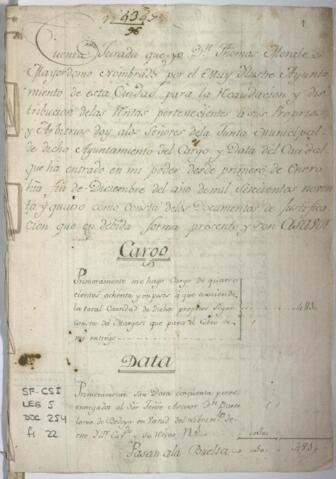 1
434
96
Cuenta Jurada que yo Dn. Thomas Morales
Mayordomo Nombrado por el Muy Ilustre Ayunta
miento de esta Ciudad para la Recaudacion y dis
tribucion de las Rentas pertenecientes a sus Proprios
y Arbitrios doy a los Señores de la Junta Municipal
de dicho Ayuntamiento del Cargo y Data del Caudal
que ha entrado en mi poder desde primero de Enero
hta. fin de Diciembre del año de mil setecientos noven
ta y quatro como consta de los Documentos de Justifica
cion que en debida forma presento y son
Cargo
Primeramente me hago Cargo de quatro
cientos ochenta y un pesos a que asciende
la total Cantidad de dichos proprios segun
consta del que para el Cobro
me entregó 481.
Data
Primeramente son Data cincuenta pesos
entregados al Sor. Tente. Asesor Dn.
de Bedoya en virtud del
y su recivo No. 1
Pasan a la Buelta 481.
SF-CSI
LEG 5
DOC 254
f. 22